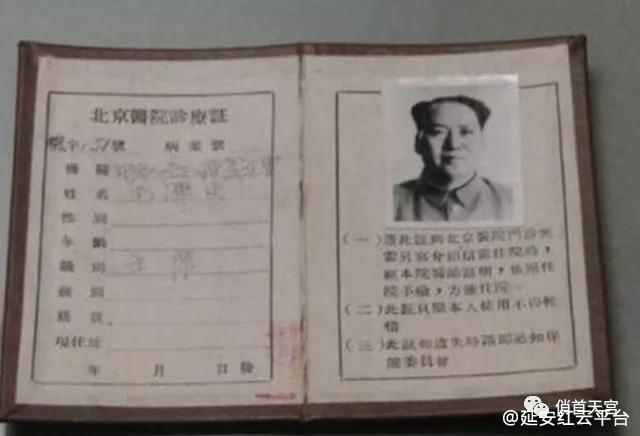 北京醫院診療証
字 51 號 病案號
姓名 毛澤東
性別
年齡
職別 主席
級別
籍貫
現住址
年 月 日發
(一) 憑此証到北京醫院門診無
需另寫介紹信需住院時，
經本院醫師証明，依照住
院手續，方准住院。
(二) 此証只限本人使用不得轉
借
(三) 此証如遺失時請即通知保
健委員會
俏首天宫
@延安红云平台